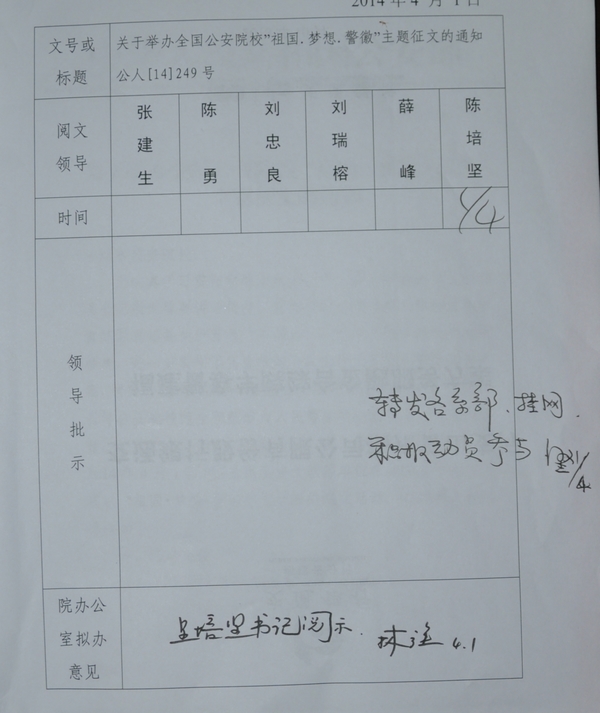 2014 年 4 月 1 日
文号或
标题
关于举办全国公安院校"祖国.梦想.警徽"主题征文的通知
公人[14]249 号
阅文
领导
张建生
陈勇
刘忠良
刘瑞榕
薛峰
陈培坚
时间
1/4
领导批示
转发各系部、挂网.
积极动员参与
1/4
院办公
室拟办
意见
呈培坚书记阅示. 林 4.1